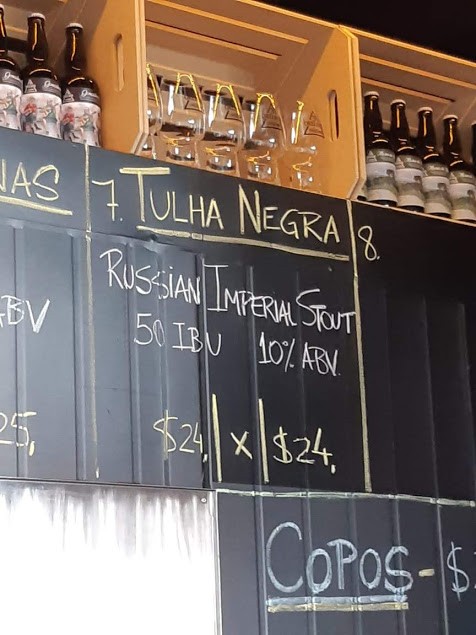 NAS
7. TULHA NEGRA
8.
RUSSIAN IMPERIAL STOUT
ABV
50 IBU 10% ABV.
25,
$24, | X | $24,
COPOS - $